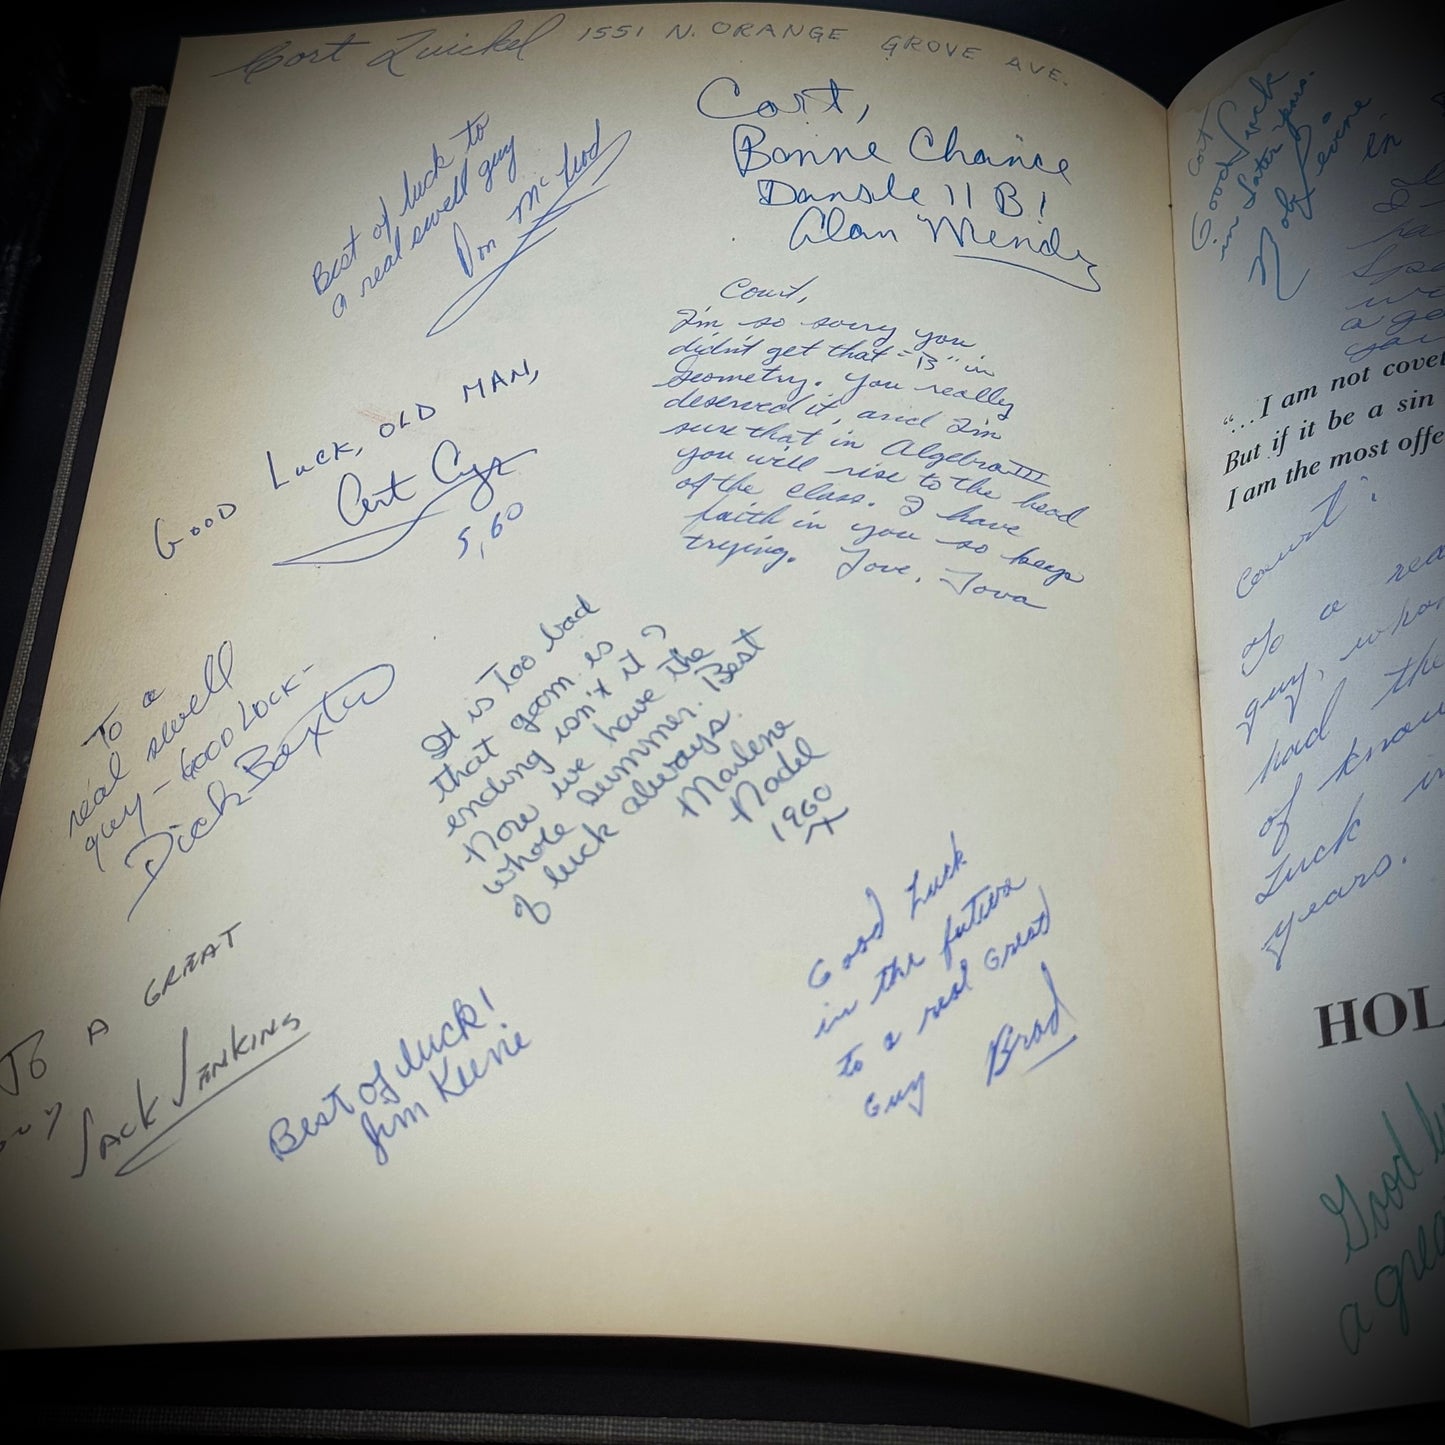 Cort Quickel 1551 N. ORANGE GROVE AVE.
Best of luck to
a real swell guy
Don McLeod
Cort,
Bonne Chance
Dansle 11 B!
Alan Mendz
Court,
I'm so sorry you
didn't get that "B" in
Geometry. You really
deserved it, and I'm
sure that in Algebra III
you will rise to the head
of the class. I have
faith in you so keep
trying. Love, Tova
GOOD LUCK, OLD MAN,
5, 60
To a
real swell
guy - GOOD LUCK -
Dick Baxter
It is too bad
that goom is
ending isn't it?
Now we have the
whole summer. Best
of luck always.
Marlene
Nadel
1960
TO A GREAT
GUY
JACK JENKINS
Best of luck!
Jim Keene
Good Luck
in the future
to a real Great
Guy Brad
Cort
Good Luck
in later years.
in
"...I am not covet
But if it be a sin
I am the most offe
Court:
To a rea
guy, whom
had the
of know
Luck in
years.
HOL
Good lu
a grea